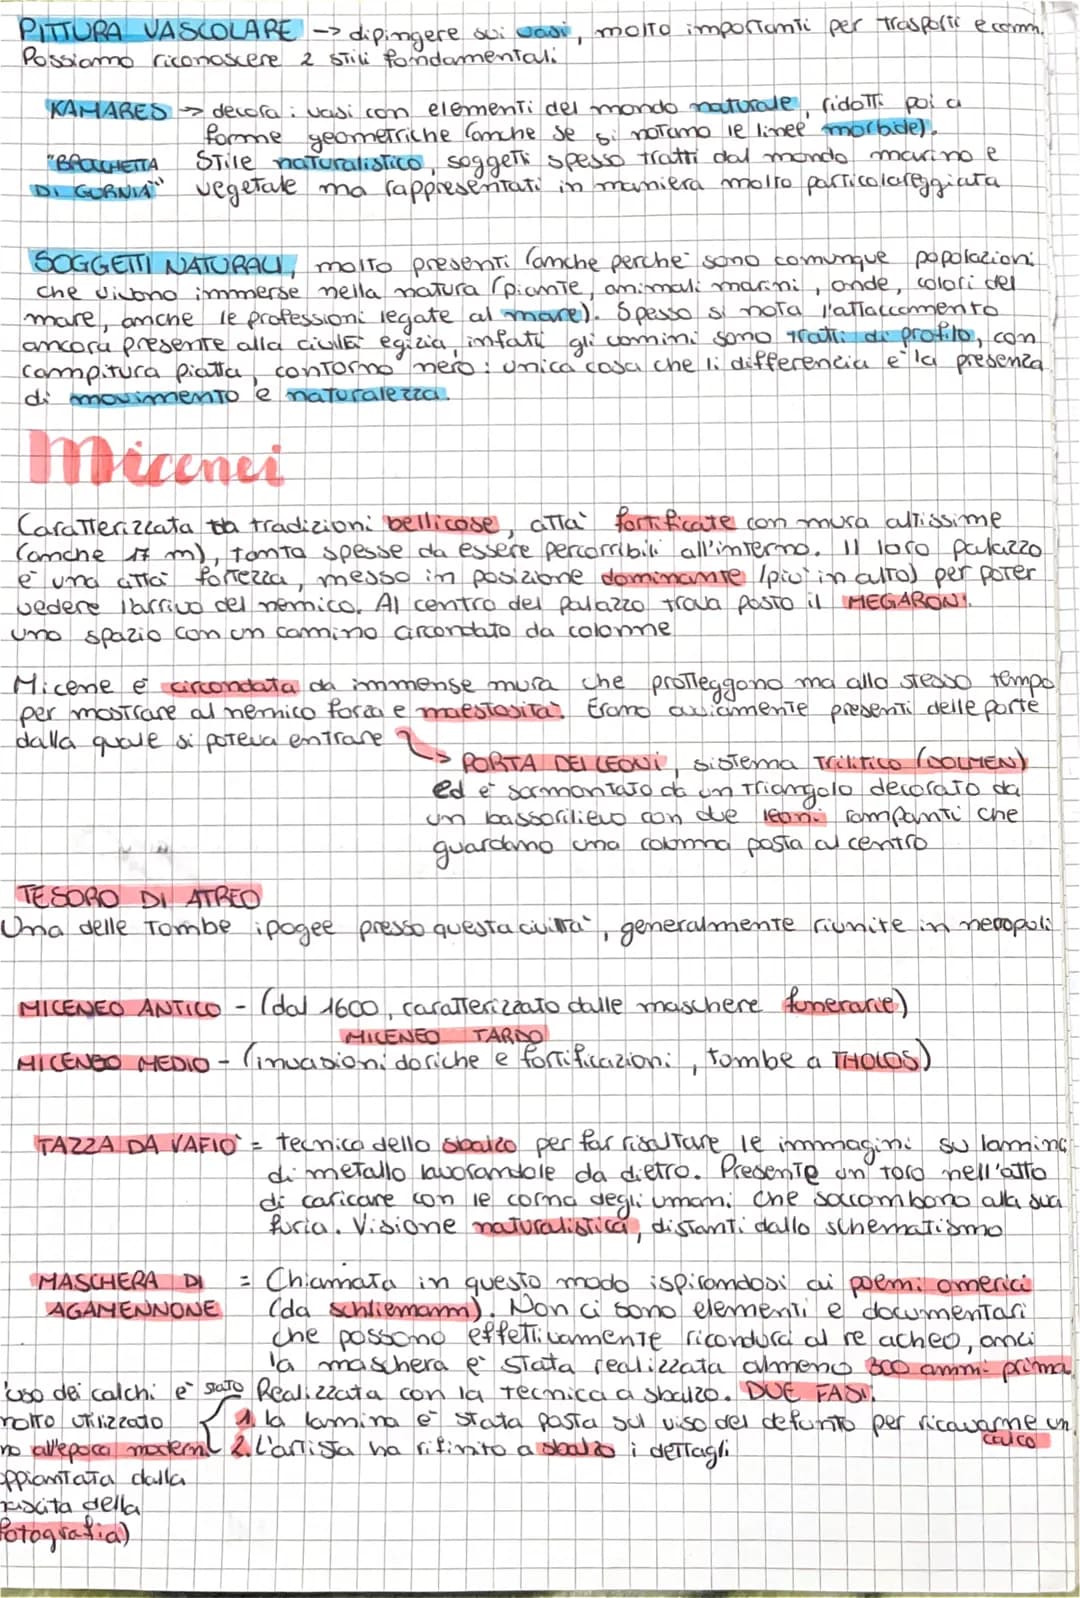 PITTURA VASCOLARE -> dipingere sui vasi, molto importanti per trasporti e comm.
Possiamo riconoscere 2 stili fondamentali:
KAMARES -> decora i vasi con elementi del mondo naturale, ridotti poi a
forme geometriche (anche se si notano le linee morbide).
"BROCCHETTA Stile naturalistico, soggetti spesso tratti dal mondo marino e
DI GURNIA" vegetale ma rappresentati in maniera molto particolareggiata
SOGGETTI NATURALI, molto presenti (anche perchè sono comunque popolazioni
che vivono immerse nella natura (piante, animali marini, onde, colori del
mare, anche le professioni legate al mare). Spesso si nota l'attaccamento
ancora presente alla civiltà egizia, infatti gli uomini sono tratti di profilo, con
campitura piatta, contorno nero: unica cosa che li differencia è la presenza
di movimento e naturalezza.
Micenei
Caratterizzata da tradizioni bellicose, città fortificate con mura altissime
(anche 17 m), tanto spesse da essere percorribili all'interno. Il loro palazzo
è una città fortezza, messo in posizione dominante (più in alto) per poter
vedere l'arrivo del nemico. Al centro del palazzo trova posto il MEGARON:
uno spazio con un camino circondato da colonne
Micene è circondata da immense mura che protteggono ma allo stesso tempo
per mostrare al nemico forza e maestosità. Erano ovviamente presenti delle porte
dalla quale si poteva entrare
-> PORTA DEI LEONI, sistema trilitico (DOLMEN)
ed è sormontato da un triangolo decorato da
un bassorilievo con due leoni rampanti che
guardano una colonna posta al centro
TESORO DI ATREO
Una delle tombe ipogee presso questa civiltà, generalmente riunite in necropoli
MICENEO ANTICO - (dal 1600, caratterizzato dalle maschere funerarie)
MICENEO TARDO
MICENEO MEDIO - (invasioni doriche e fortificazioni, tombe a THOLOS)
TAZZA DA VAFIO = tecnica dello sbalzo per far risaltare le immagini su lamina
di metallo lavorandole da dietro. Presente un toro nell'atto
di caricare con le corna degli umani che soccombono alla sua
furia. Visione naturalistica, distanti dallo schematismo
MASCHERA DI = Chiamata in questo modo ispirandosi ai poemi omerici
AGAMENNONE (da schliemann). Non ci sono elementi e documentari
che possono effettivamente ricondurci al re acheo, anzi
la maschera è stata realizzata almeno 300 anni prima
'uso dei calchi è stato Realizzata con la tecnica a sbalzo. DUE FASI:
molto utilizzato 1. la lamina è stata posta sul viso del defunto per ricavarne un
no all'epoca moderna 2. L'artista ha rifinito a sbalzo i dettagli calco
ppiantata dalla
nascita della
fotografia)